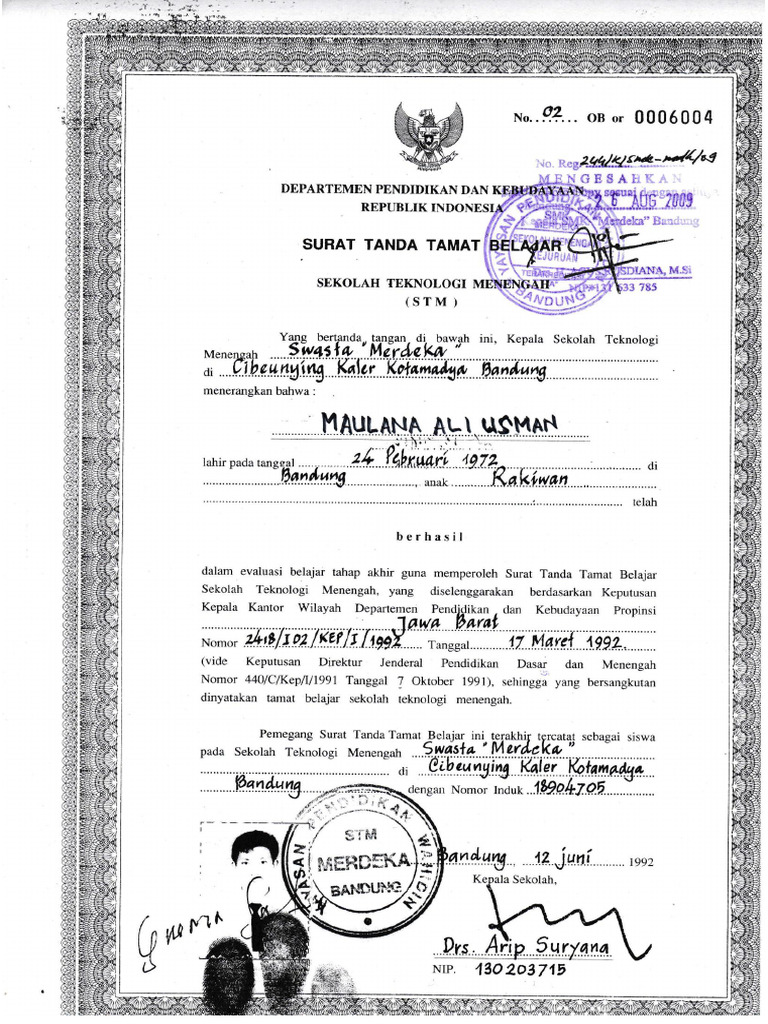 No. 02 OB or 0006004
No. Reg
MENGESAHKAN
sesuai dengan
26 AUG 2009
SMK "Merdeka" Bandung
DEPARTEMEN PENDIDIKAN DAN KEBUDAYAAN
REPUBLIK INDONESIA
YAYASAN PENDIDIKAN
SMK
MERDEKA
SEKOLAH MENENGAH
KEJURUAN
BANDUNG
SURAT TANDA TAMAT BELAJAR
SEKOLAH TEKNOLOGI MENENGAH
( S T M )
USDIANA, M.Si
NIP. 131 633 785
Yang bertanda tangan di bawah ini, Kepala Sekolah Teknologi
Menengah Swasta "Merdeka"
di Cibeunying Kaler Kotamadya Bandung
menerangkan bahwa :
MAULANA ALI USMAN
lahir pada tanggal 24 Pebruari 1972 di
Bandung, anak Rakiwan
telah
berhasil
dalam evaluasi belajar tahap akhir guna memperoleh Surat Tanda Tamat Belajar
Sekolah Teknologi Menengah, yang diselenggarakan berdasarkan Keputusan
Kepala Kantor Wilayah Departemen Pendidikan dan Kebudayaan Propinsi
Jawa Barat
Nomor 2418/I02/KEP/I/1992 Tanggal 17 Maret 1992.
(vide Keputusan Direktur Jenderal Pendidikan Dasar dan Menengah
Nomor 440/C/Kep/I/1991 Tanggal 7 Oktober 1991), sehingga yang bersangkutan
dinyatakan tamat belajar sekolah teknologi menengah.
Pemegang Surat Tanda Tamat Belajar ini terakhir tercatat sebagai siswa
pada Sekolah Teknologi Menengah Swasta "Merdeka"
di Cibeunying Kaler Kotamadya
Bandung dengan Nomor Induk 18904705
YAYASAN PENDIDIKAN WAHIDIN
STM
MERDEKA
BANDUNG
Bandung, 12 juni 1992
Kepala Sekolah,
Drs. Arip Suryana
NIP. 130203715